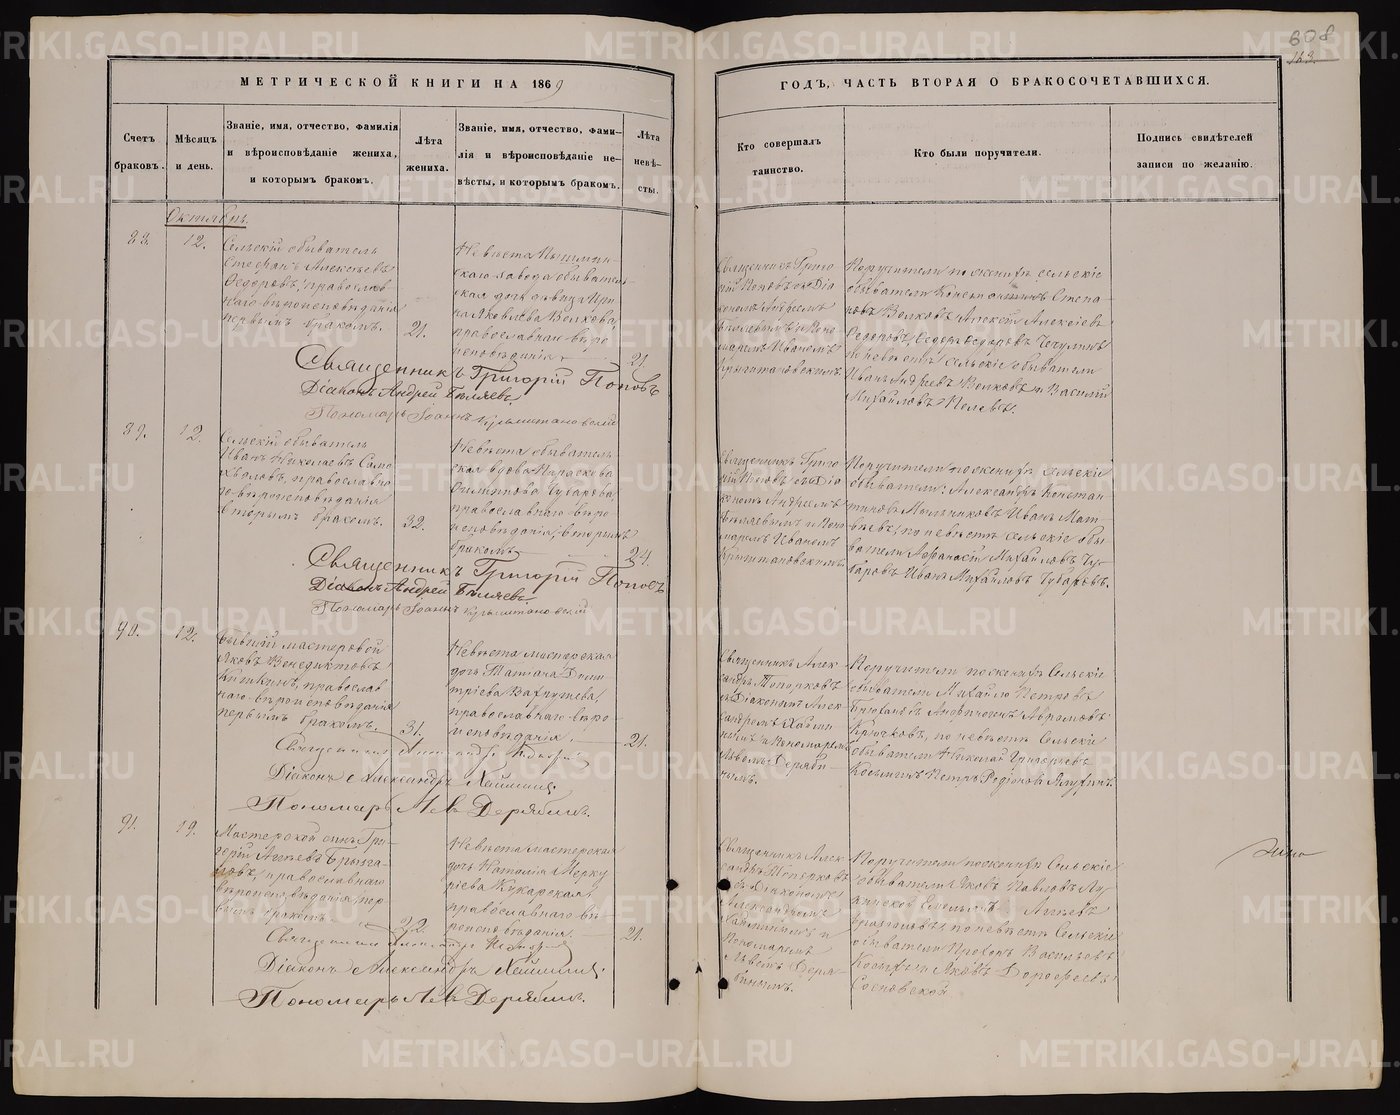 608
163.
МЕТРИЧЕСКОЙ КНИГИ НА 1869
ГОДЪ, ЧАСТЬ ВТОРАЯ О БРАКОСОЧЕТАВШИХСЯ.
Счетъ
браковъ.
Мѣсяцъ
и день.
Званіе, имя, отчество, фамилія
и вѣроисповѣданіе жениха,
и которымъ бракомъ.
Лѣта
жениха.
Званіе, имя, отчество, фами-
лія и вѣроисповѣданіе не-
вѣсты, и которымъ бракомъ.
Лѣта
невѣ-
сты.
Кто совершалъ
таинство.
Кто были поручители.
Подпись свидѣтелей
записи по желанію.
Октябрь.
88.
12.
Сельскій обыватель
Стефанъ Алексѣевъ
Ѳедоровъ, православ-
наго вѣроисповѣданія
первымъ бракомъ.
21.
Невѣста Пышмин-
скаго завода обыватель-
ская дочь дѣвица Ири-
на Яковлева Волкова,
православнаго вѣро-
исповѣданія
21.
Священникъ Григорій Поповъ
Діаконъ Андрей Бѣляевъ
Пономарь Іоаннъ
Священникъ Григо-
рій Поповъ съ Діа-
кономъ Андреемъ
Бѣляевымъ и Поно-
маремъ Иваномъ
Поручители по женихѣ сельскіе
обыватели Константинъ Степа-
новъ Волковъ, Алексѣй Алексѣевъ
Ѳедоровъ, Ѳедоръ Ѳедоровъ
по невѣстѣ сельскіе обыватели
Иванъ Андреевъ Волковъ и Василій
Михайловъ
89.
12.
Сельскій обыватель
Иванъ Николаевъ Само-
хваловъ, православна-
го вѣроисповѣданія
вторымъ бракомъ.
32.
Невѣста обыватель-
ская вдова Параскева
Филиппова Чубарова
православнаго вѣро-
исповѣданія, вторымъ
бракомъ
24.
Священникъ Григорій Поповъ
Діаконъ Андрей Бѣляевъ
Пономарь Іоаннъ
Священникъ Григо-
рій Поповъ съ Діа-
кономъ Андреемъ
Бѣляевымъ и Поно-
маремъ Иваномъ
Поручители по женихѣ сельскіе
обыватели: Александръ Констан-
тиновъ Мельниковъ, Иванъ Мат-
вѣевъ, по невѣстѣ сельскіе обы-
ватели Афанасій Михайловъ Чу-
баровъ, Иванъ Михайловъ Чубаровъ.
90.
12.
Бывшій мастеровой
Яковъ Венедиктовъ
Кишкинъ, православ-
наго вѣроисповѣданія
первымъ бракомъ.
31.
Невѣста мастерская
дочь Татіана Дими-
тріева Вахрушева,
православнаго вѣро-
исповѣданія.
21.
Священникъ Александръ
Діаконъ Александръ
Пономарь Левъ Дерябинъ.
Священникъ Алек-
сандръ Топорковъ
съ Діакономъ Алек-
сандромъ
и Пономаремъ
Львомъ Деряби-
нымъ.
Поручители по женихѣ Сельскіе
обыватели Михайло Петровъ
Аврамовъ
Крючковъ, по невѣстѣ Сельскіе
обыватели Николай Григорьевъ
Косыгинъ, Петръ Родіоновъ
91.
19.
Мастерской сынъ Гри-
горій Агѣевъ Брызга-
ловъ, православнаго
вѣроисповѣданія, пер-
вымъ бракомъ.
22.
Невѣста мастерская
дочь Наталія Мерку-
ріева Кукарская,
православнаго вѣ-
роисповѣданія.
21.
Священникъ Александръ
Діаконъ Александръ
Пономарь Левъ Дерябинъ.
Священникъ Алек-
сандръ Топорковъ
съ Діакономъ
Александромъ
и
Пономаремъ
Львомъ Деря-
бинымъ.
Поручители по женихѣ Сельскіе
обыватели Яковъ Павловъ
Емельянъ Агѣевъ
Брызгаловъ, по невѣстѣ Сельскіе
обыватели Прохоръ Васильевъ
Яковъ Дороѳеевъ
Сосновской
METRIKI.GASO-URAL.RU